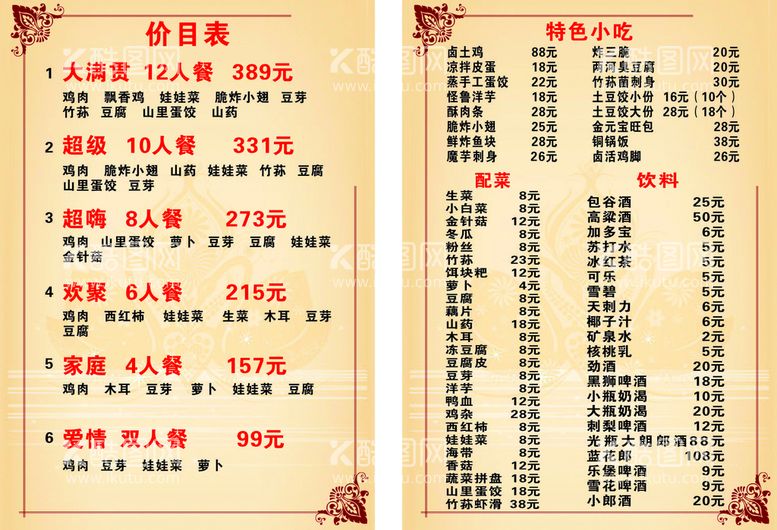 价目表
1 大满贯 12人餐 389元
鸡肉 飘香鸡 娃娃菜 脆炸小翅 豆芽
竹荪 豆腐 山里蛋饺 山药
2 超级 10人餐 331元
鸡肉 脆炸小翅 山药 娃娃菜 竹荪 豆腐
山里蛋饺 豆芽
3 超嗨 8人餐 273元
鸡肉 山里蛋饺 萝卜 豆芽 豆腐 娃娃菜
金针菇
4 欢聚 6人餐 215元
鸡肉 西红柿 娃娃菜 生菜 木耳 豆芽
豆腐
5 家庭 4人餐 157元
鸡肉 木耳 豆芽 萝卜 娃娃菜 豆腐
6 爱情 双人餐 99元
鸡肉 豆芽 娃娃菜 萝卜
特色小吃
卤土鸡 88元
凉拌皮蛋 18元
蒸手工蛋饺 22元
怪鲁洋芋 18元
酥肉条 28元
脆炸小翅 25元
鲜炸鱼块 28元
魔芋刺身 26元
炸三脆 20元
两河臭豆腐 20元
竹荪菌刺身 30元
土豆饺小份 16元（10个）
土豆饺大份 28元（18个）
金元宝旺包 28元
铜锅饭 38元
卤活鸡脚 26元
配菜
生菜 8元
小白菜 8元
金针菇 12元
冬瓜 8元
粉丝 8元
竹荪 23元
饵块粑 12元
萝卜 4元
豆腐 8元
藕片 8元
山药 18元
木耳 8元
冻豆腐 8元
豆腐皮 8元
豆芽 8元
洋芋 8元
鸭血 12元
鸡杂 28元
西红柿 8元
娃娃菜 8元
海带 8元
香菇 12元
蔬菜拼盘 18元
山里蛋饺 18元
竹荪虾滑 38元
饮料
包谷酒 25元
高粱酒 50元
加多宝 6元
苏打水 5元
冰红茶 5元
可乐 5元
雪碧 5元
天刺力 6元
椰子汁 6元
矿泉水 2元
核桃乳 5元
劲酒 20元
黑狮啤酒 18元
小瓶奶渴 10元
大瓶奶渴 20元
刺梨啤酒 12元
光瓶大朗郎酒88元
蓝花郎 108元
乐堡啤酒 9元
雪花啤酒 9元
小郎酒 20元